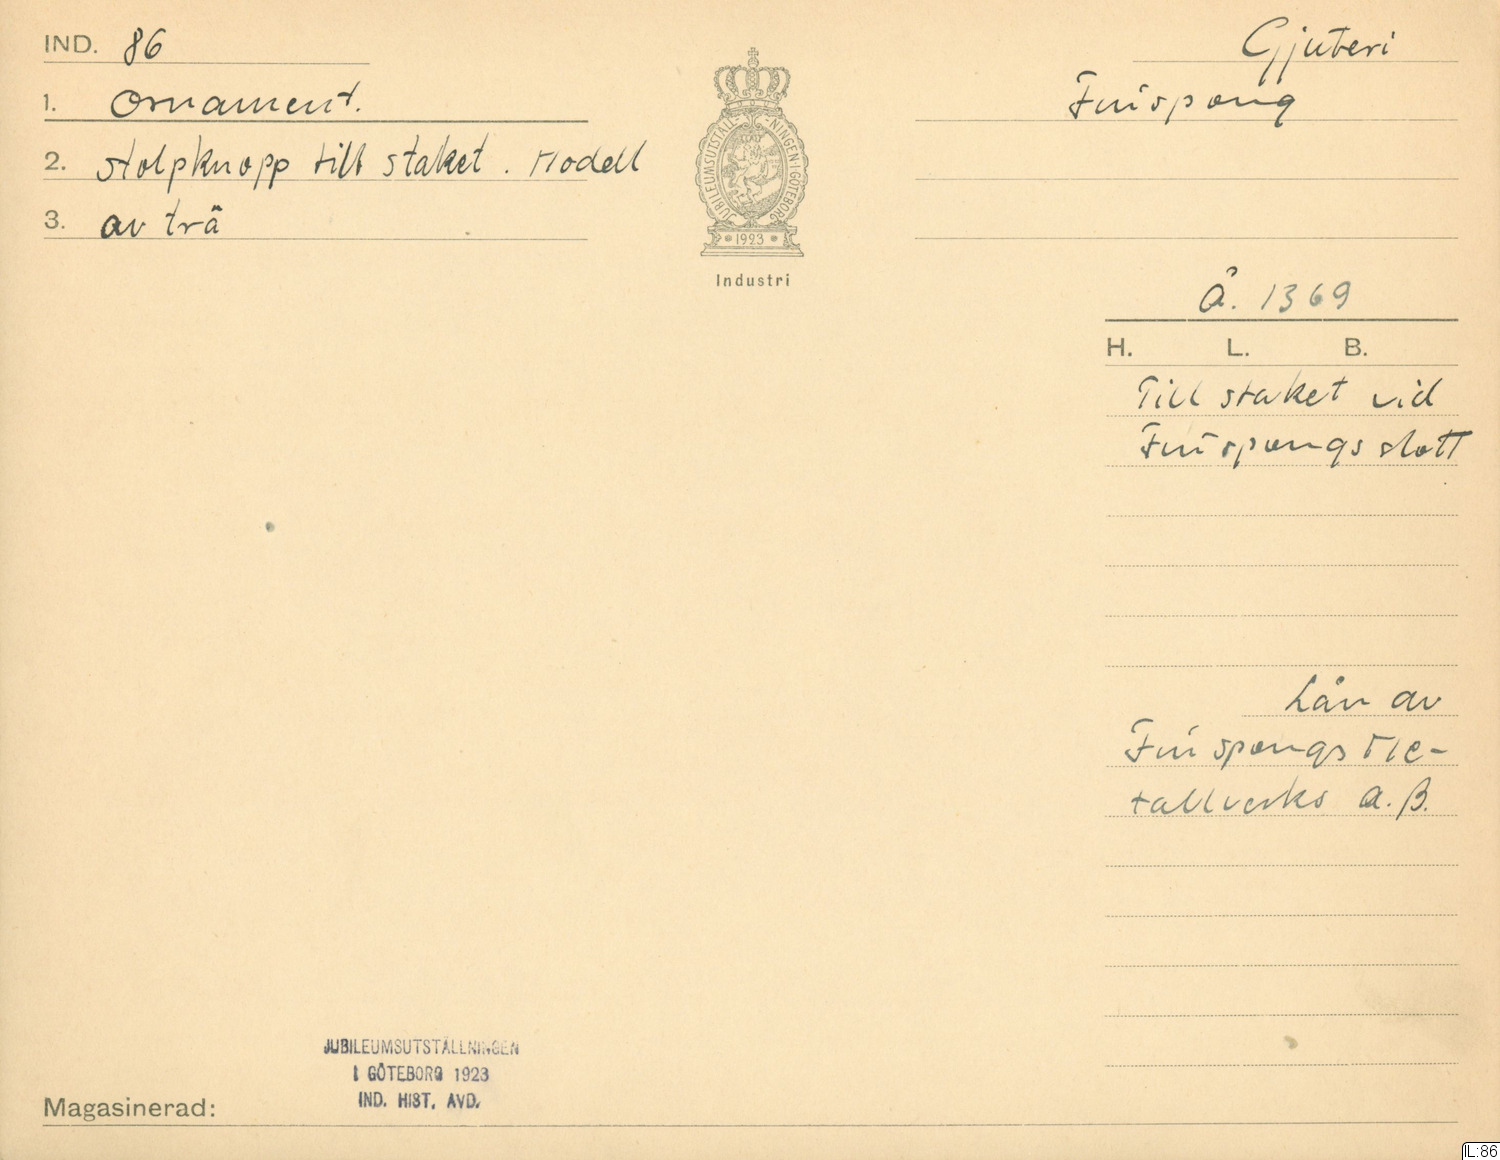 IND. 86
1. Ornament.
2. Stolpknopp till staket. Modell
3. av trä
JUBILEUMSUTSTÄLL-NINGEN I GÖTEBORG
1923
Industri
Gjuteri
Finspong
Å. 1369
H. L. B.
Till staket vid
Finspongs slott
Lån av
Finspongs Me-
tallverks A.B.
JUBILEUMSUTSTÄLLNINGEN
I GÖTEBORG 1923
IND. HIST. AVD.
Magasinerad:
IL:86